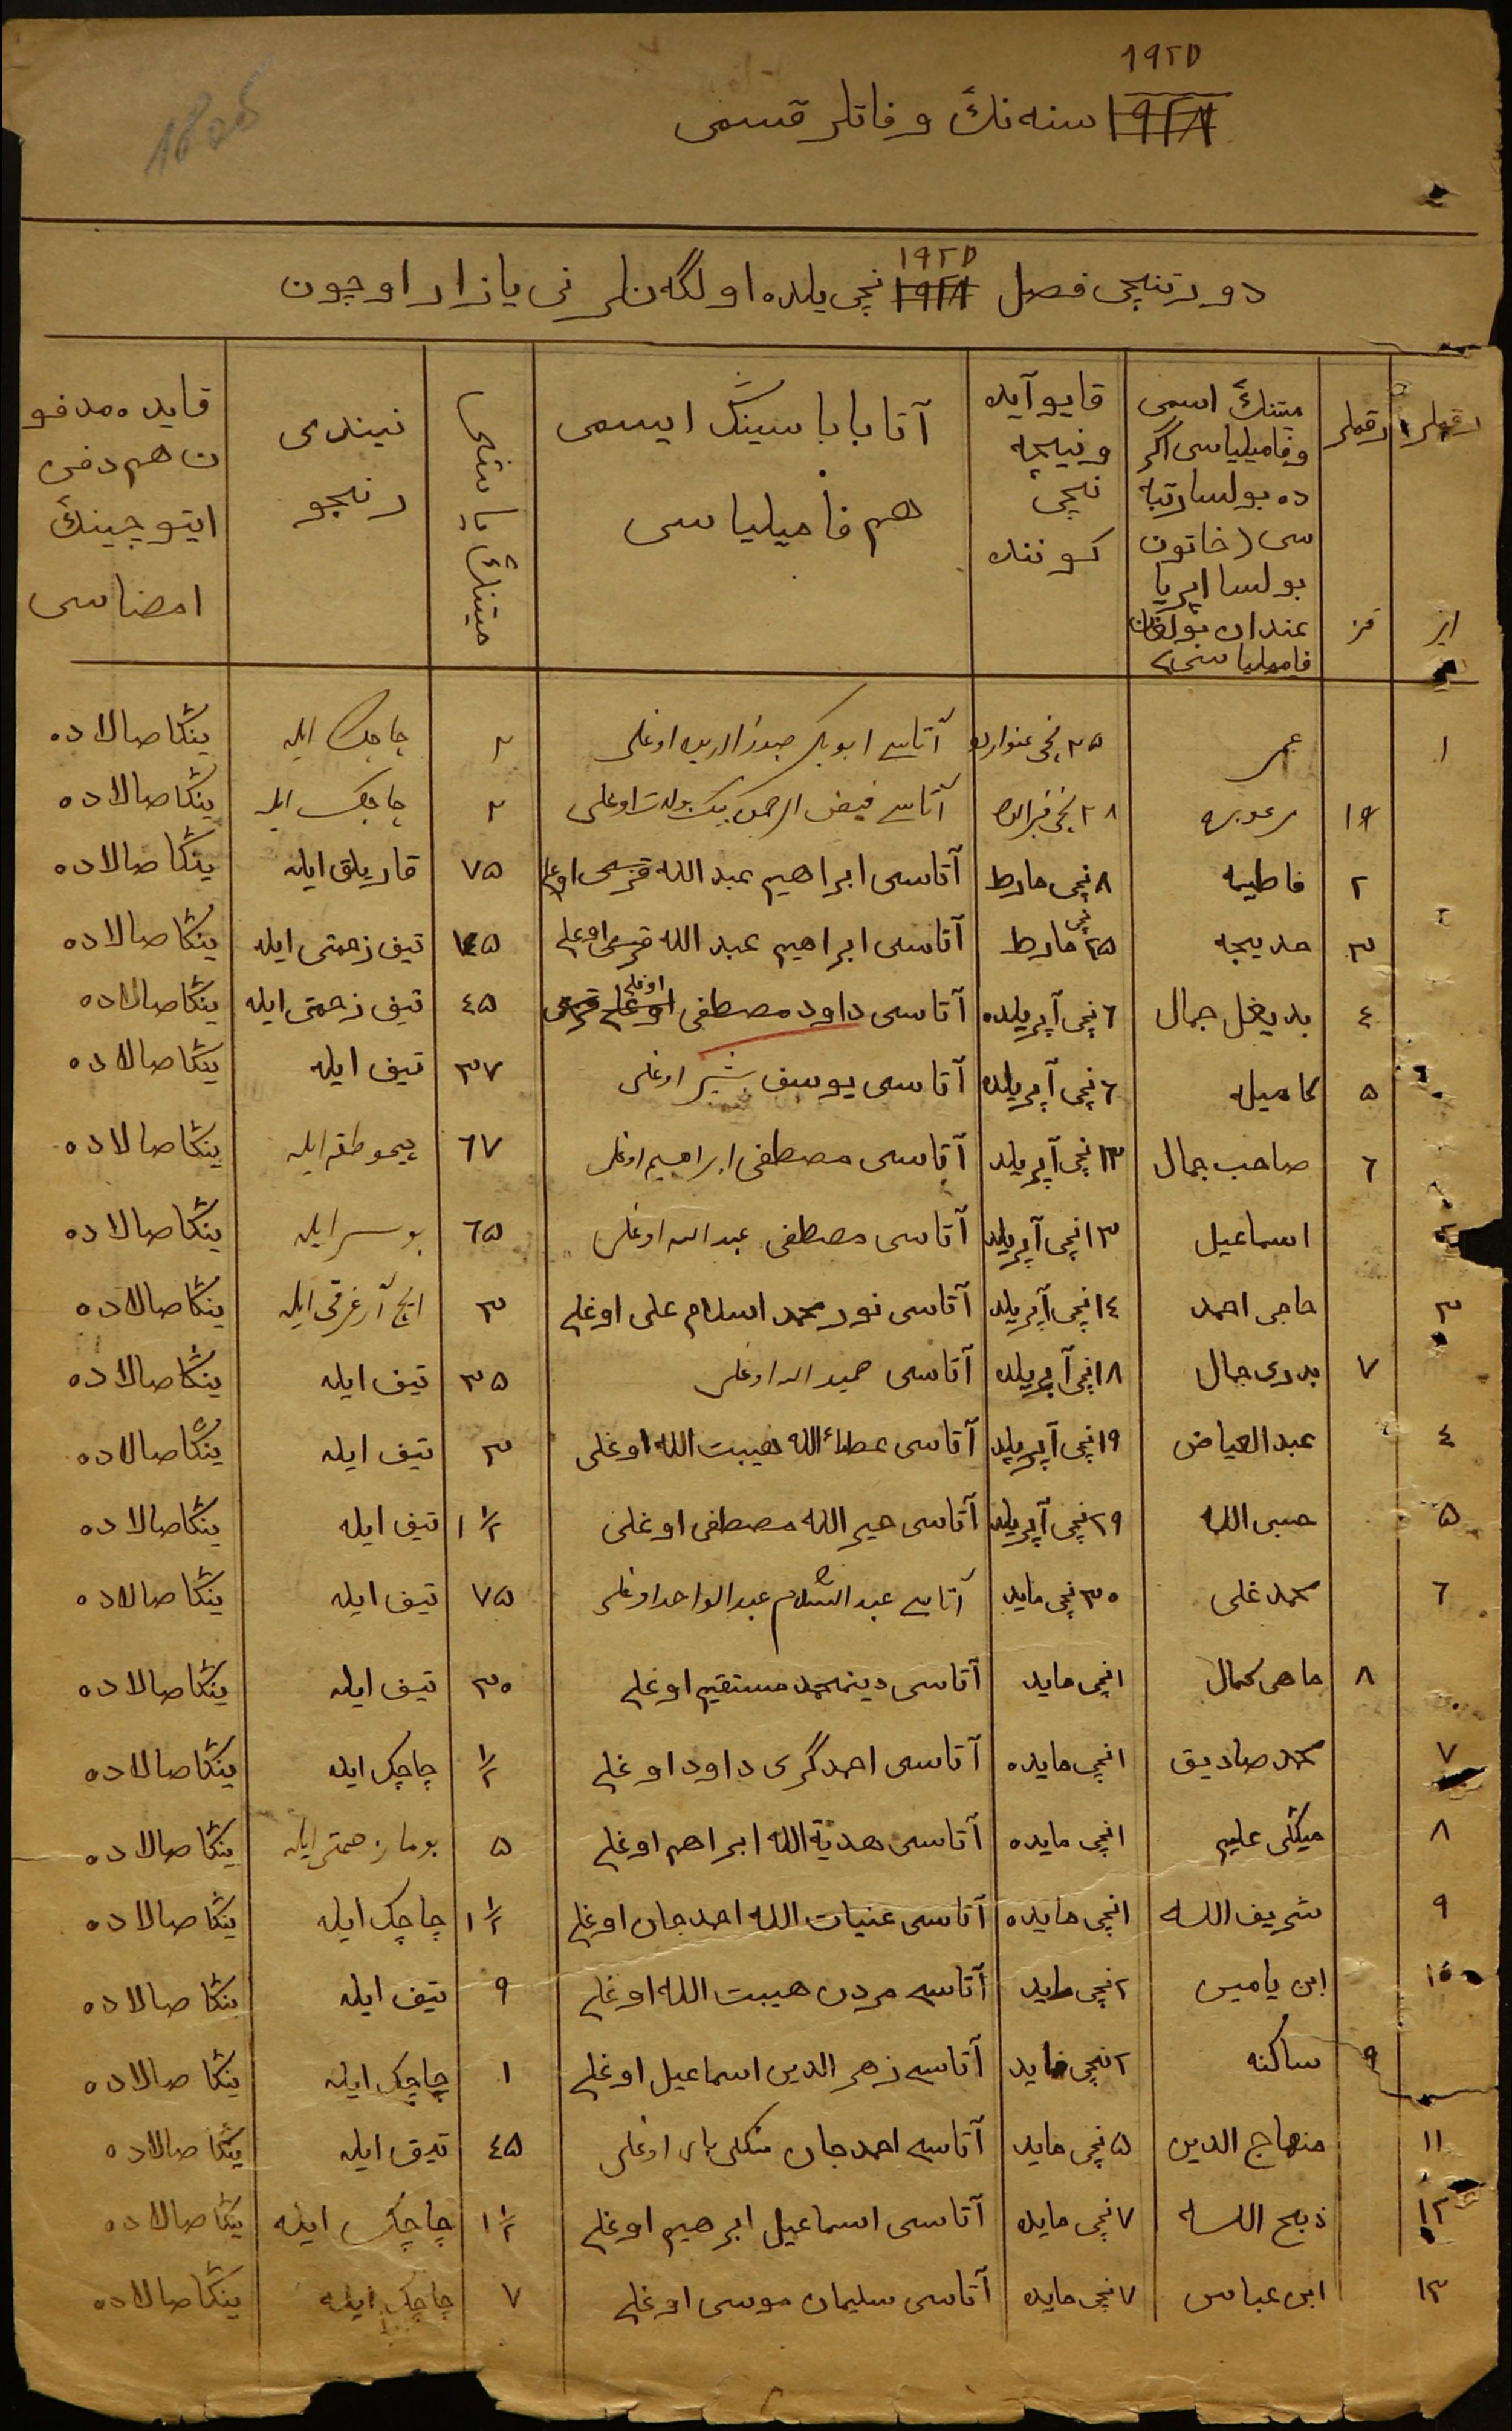 ١٩٢٥
سنه نڭ وفاتلر قسمی
دورتنچی فصل ١٩٢٥ نچی يلده اولگه نلر نی يازار اوچون
رقملر رقملر ميتنڭ اسمی وفاميلياسی اگر ده بولسا رتبه سی (خاتون بولسا ايريا فاميلياسی) قايو آيده ونيچه نچی كوننده آتا باباسينڭ ايسمی هم فاميلياسی ميتنڭ ياشی نيندی رنجو قايده مدفون هم دفن ايتوچينڭ امضاسی
اير قز
١ عمر ٢٥ نچی غنوارده آتاسی ابوبكر اوغلی ٢ چاچك ايله ينگا صالاده
١ ٢٨ نچی آتاسی فيض الرحمن اوغلی ٢ چاچك ايله ينگا صالاده
٢ فاطيمه ٨ نچی مارط آتاسی ابراهيم عبد الله اوغلی ٧٥ قاريلق ايله ينگا صالاده
٣ خديجه ٢٥ نچی مارط آتاسی ابراهيم عبد الله اوغلی ٤٥ تيف زحمتی ايله ينگا صالاده
٤ بديغل جمال ٦ نچی آپريلده آتاسی داود مصطفی اوغلی ٤٥ تيف زحمتی ايله ينگا صالاده
٥ كاميله ٦ نچی آپريلده آتاسی يوسف بشير اوغلی ٣٧ تيف ايله ينگا صالاده
٦ صاحب جمال ١٣ نچی آپريلده آتاسی مصطفی ابراهيم اوغلی ٦٧ ايله ينگا صالاده
٢ اسماعيل ١٣ نچی آپريلده آتاسی مصطفی عبد الله اوغلی ٦٥ ايله ينگا صالاده
٣ حاجی احمد ١٤ نچی آپريلده آتاسی نور محمد اسلام علی اوغلی ٣ ايچ آغرقی ايله ينگا صالاده
٧ بدری جمال ١٨ نچی آپريلده آتاسی حميد الله اوغلی ٣٥ تيف ايله ينگا صالاده
٤ عبد العياض ١٩ نچی آپريلده آتاسی عطاء الله هيبت الله اوغلی ٣ تيف ايله ينگا صالاده
٥ حبی الله ٢٩ نچی آپريلده آتاسی خير الله مصطفی اوغلی ١ ١/٢ تيف ايله ينگا صالاده
٦ محمد علی ٣٠ نچی مايده آتاسی عبد السلام عبد الواحد اوغلی ٧٥ تيف ايله ينگا صالاده
٨ ماهی كمال ١ نچی مايده آتاسی دينمحمد مستقيم اوغلی ٣٠ تيف ايله ينگا صالاده
٧ محمد صاديق ١ نچی مايده آتاسی احمد گری داود اوغلی ١/٢ چاچك ايله ينگا صالاده
٨ مينگلی عليم ١ نچی مايده آتاسی هدية الله ابراهم اوغلی ٥ بوما زحمتی ايله ينگا صالاده
٩ شريف الله ١ نچی مايده آتاسی عنيات الله احمد جان اوغلی ١ ١/٢ چاچك ايله ينگا صالاده
١٠ ابن يامين ٢ نچی مايده آتاسی مردن هيبت الله اوغلی ٩ تيف ايله ينگا صالاده
٩ ساكنه ٢ نچی مايده آتاسی زهر الدين اسماعيل اوغلی ١ چاچك ايله ينگا صالاده
١١ منهاج الدين ٥ نچی مايده آتاسی احمد جان منگلی بای اوغلی ٤٥ تيف ايله ينگا صالاده
١٢ ذبيح الله ٧ نچی مايده آتاسی اسماعيل ابرهيم اوغلی ١ ١/٢ چاچك ايله ينگا صالاده
١٣ ابن عباس ٧ نچی مايده آتاسی سليمان موسی اوغلی ٧ چاچك ايله ينگا صالاده